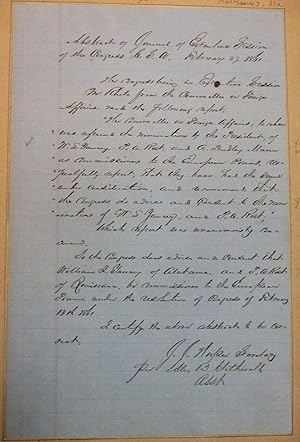 Montgomery, Ala.
Abstracts of Journal of Executive Session
of the Congress C. S. A. February 27 1861
The Congress being in Executive Session
Mr Rhett from the Committee on Foreign
Affairs, made the following report,
The Committee on Foreign Affairs, to whom
was referred the nominations by the President, of
W. L. Yancey, P. A. Rost, and A. Dudley Mann
as Commissioners to the European Powers, res-
pectfully report, that they have had the same
under consideration, and recommend that
the Congress do advise and consent to the nom-
inations of W. L. Yancey, and P. A. Rost.
Which report was unanimously con-
curred,
So the Congress does advise and consent that
William L. Yancey of Alabama and P. A. Rost
of Louisiana, be commissioners to the European
Powers under the resolution of Congress of February
13th 1861
I certify the above abstracts to be cor-
rect,
J. J. Hooper Secretary
per
Asst